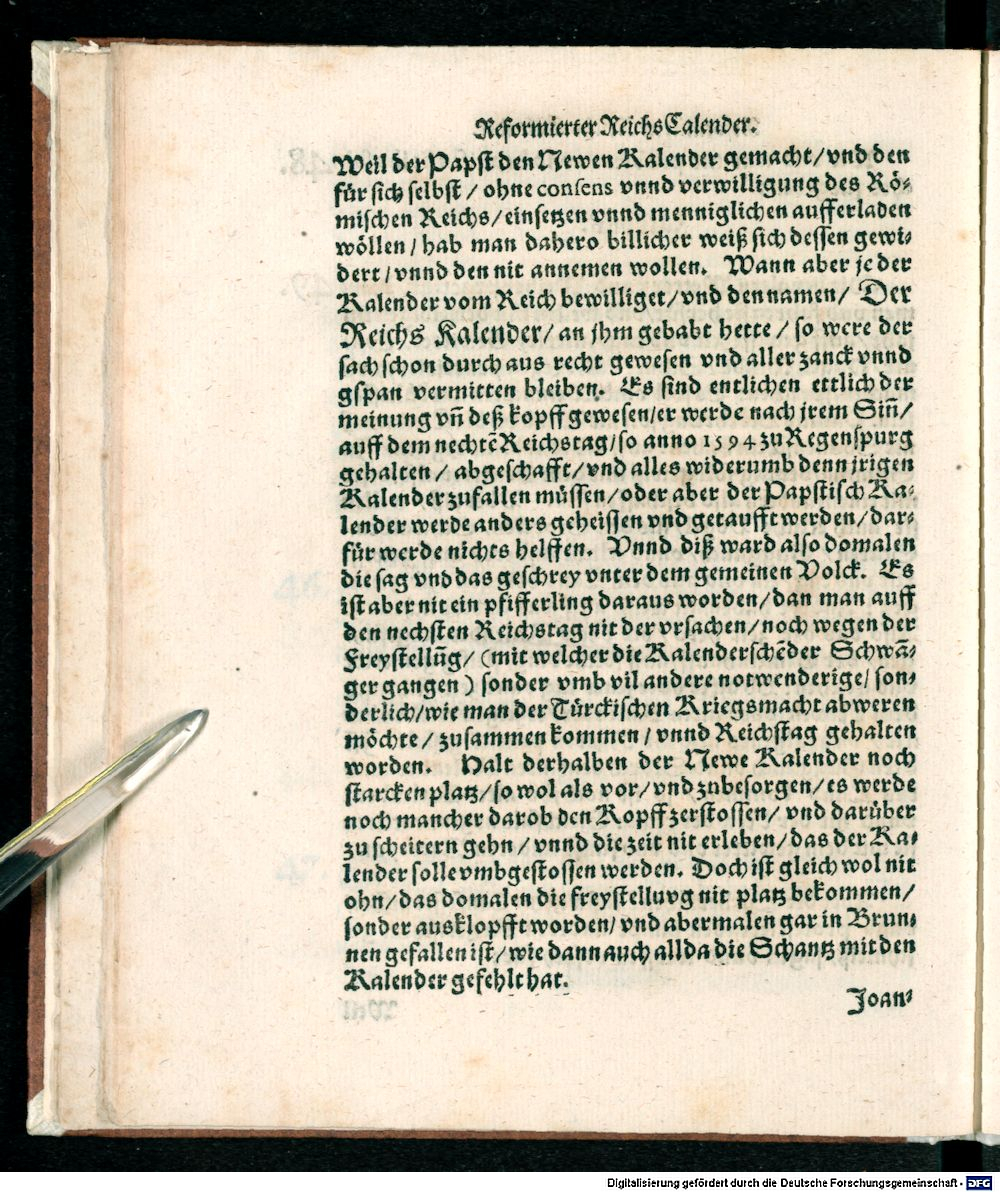 Reformierter Reichs Calender.
Weil der Papst den Newen Kalender gemacht/ vnd den
für sich selbst/ ohne consens vnnd verwilligung des Rö-
mischen Reichs/ einsetzen vnnd menniglichen aufferladen
wöllen/ hab man dahero billicher weiß sich dessen gewi-
dert/ vnnd den nit annemen wollen. Wann aber je der
Kalender vom Reich bewilliget/ vnd den namen/ Der
Reichs Kalender/ an jhm gebabt hette/ so were der
sach schon durch aus recht gewesen vnd aller zanck vnnd
gspan vermitten bleiben. Es sind entlichen ettlich der
meinung vñ deß kopff gewesen/ er werde nach jrem Siñ/
auff dem nechtẽ Reichstag/ so anno 1594 zu Regenspurg
gehalten/ abgeschafft/ vnd alles widerumb denn jrigen
Kalender zufallen müssen/ oder aber der Papstisch Ka-
lender werde anders geheissen vnd getaufft werden/ dar-
für werde nichts helffen. Vnnd diß ward also domalen
die sag vnd das geschrey vnter dem gemeinen Volck. Es
ist aber nit ein pfifferling daraus worden/ dan man auff
den nechsten Reichstag nit der vrsachen/ noch wegen der
Freystellũg/ (mit welcher die Kalenderschẽder Schwã-
ger gangen) sonder vmb vil andere notwenderige/ son-
derlich/ wie man der Türckischen Kriegsmacht abweren
möchte/ zusammen kommen/ vnnd Reichstag gehalten
worden. Halt derhalben der Newe Kalender noch
starcken platz/ so wol als vor/ vnd zubesorgen/ es werde
noch mancher darob den Kopff zerstossen/ vnd darüber
zu scheitern gehn/ vnnd die zeit nit erleben/ das der Ka-
lender solle vmbgestossen werden. Doch ist gleich wol nit
ohn/ das domalen die freystelluvg nit platz bekommen/
sonder ausklopfft worden/ vnd abermalen gar in Brun-
nen gefallen ist/ wie dann auch allda die Schantz mit den
Kalender gefehlt hat.
Joan-
Digitalisierung gefördert durch die Deutsche Forschungsgemeinschaft - DFG